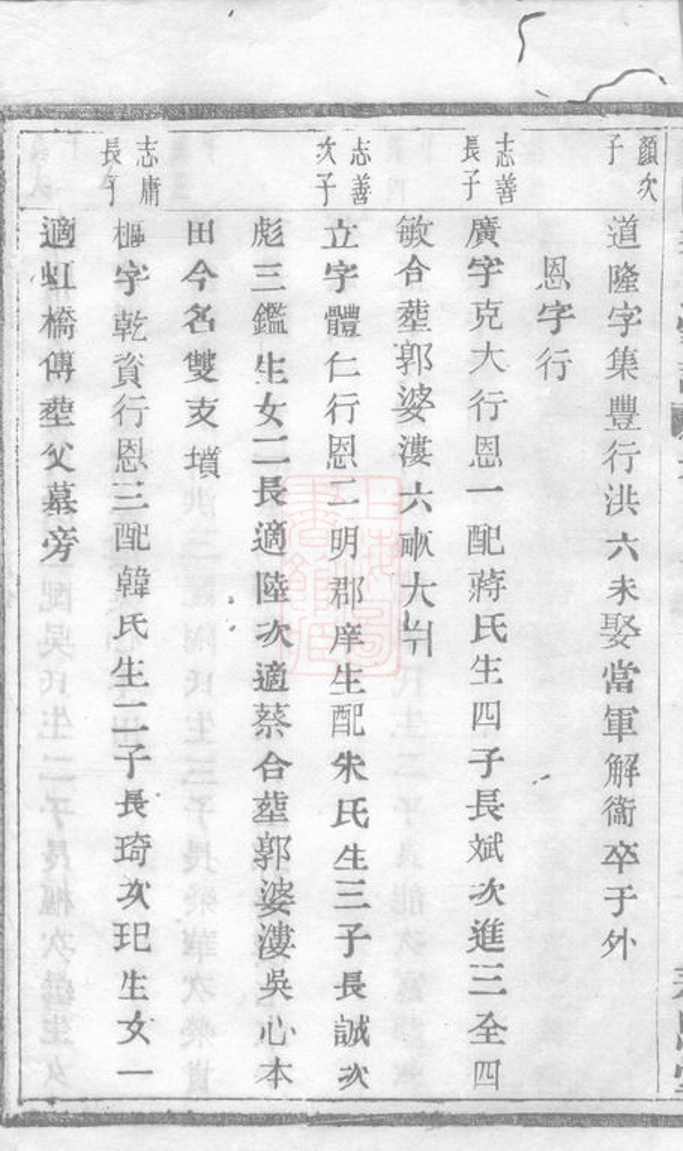 顏次子
道隆字集豐行洪六未娶當軍解衞卒于外
恩字行
志善長子
廣字克大行恩一配蔣氏生四子長斌次進三全四
敏合塟郭婆漊六畝大
志善次子
立字體仁行恩二明郡庠生配朱氏生三子長誠次
彪三鑑生女二長適陸次適蔡合塟郭婆漊吳心本
田今名雙支墳
志庸長子
樞字乾資行恩三配韓氏生二子長琦次玘生女一
適虹橋傅塟父墓旁